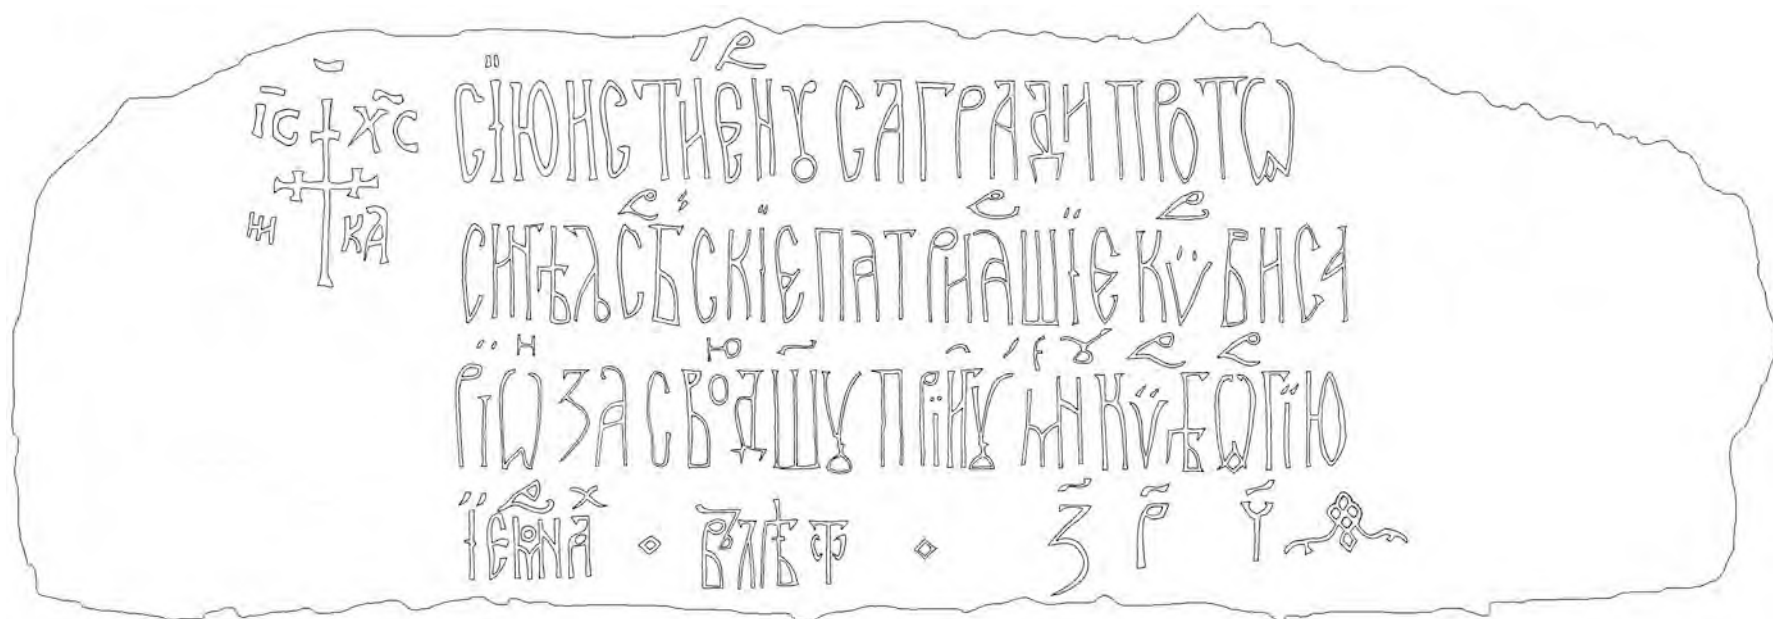 І҃С Х҃С
НИ КА
СЇЮ НСТИЕРНꙊ САГРАДИ ПРОТѠ
СИНГѢЛ СРБСКЇЕ ПАТРИАРШЇЕ КѴР ВИСА
РЇѠН ЗА СВОЮ ДШ҃Ꙋ ПРИ ИГꙊМЕНꙊ КѴР ГЕѠРГЇЮ
ЇЕРОМНАХ В ЛѢТ З҃ Р҃ Ч҃